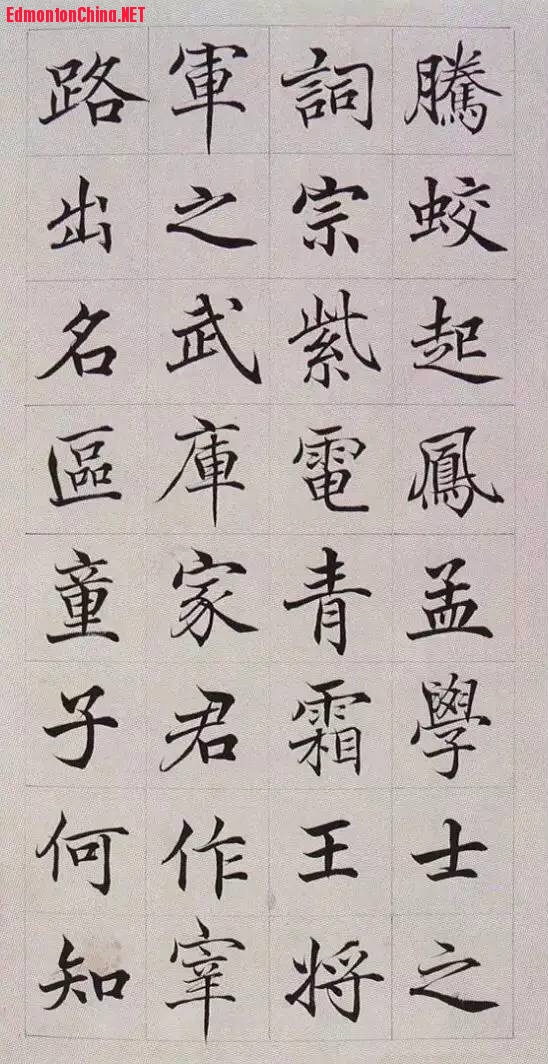 EdmontonChina.NET
騰蛟起鳳孟學士之
詞宗紫電青霜王将
軍之武庫家君作宰
路出名區童子何知